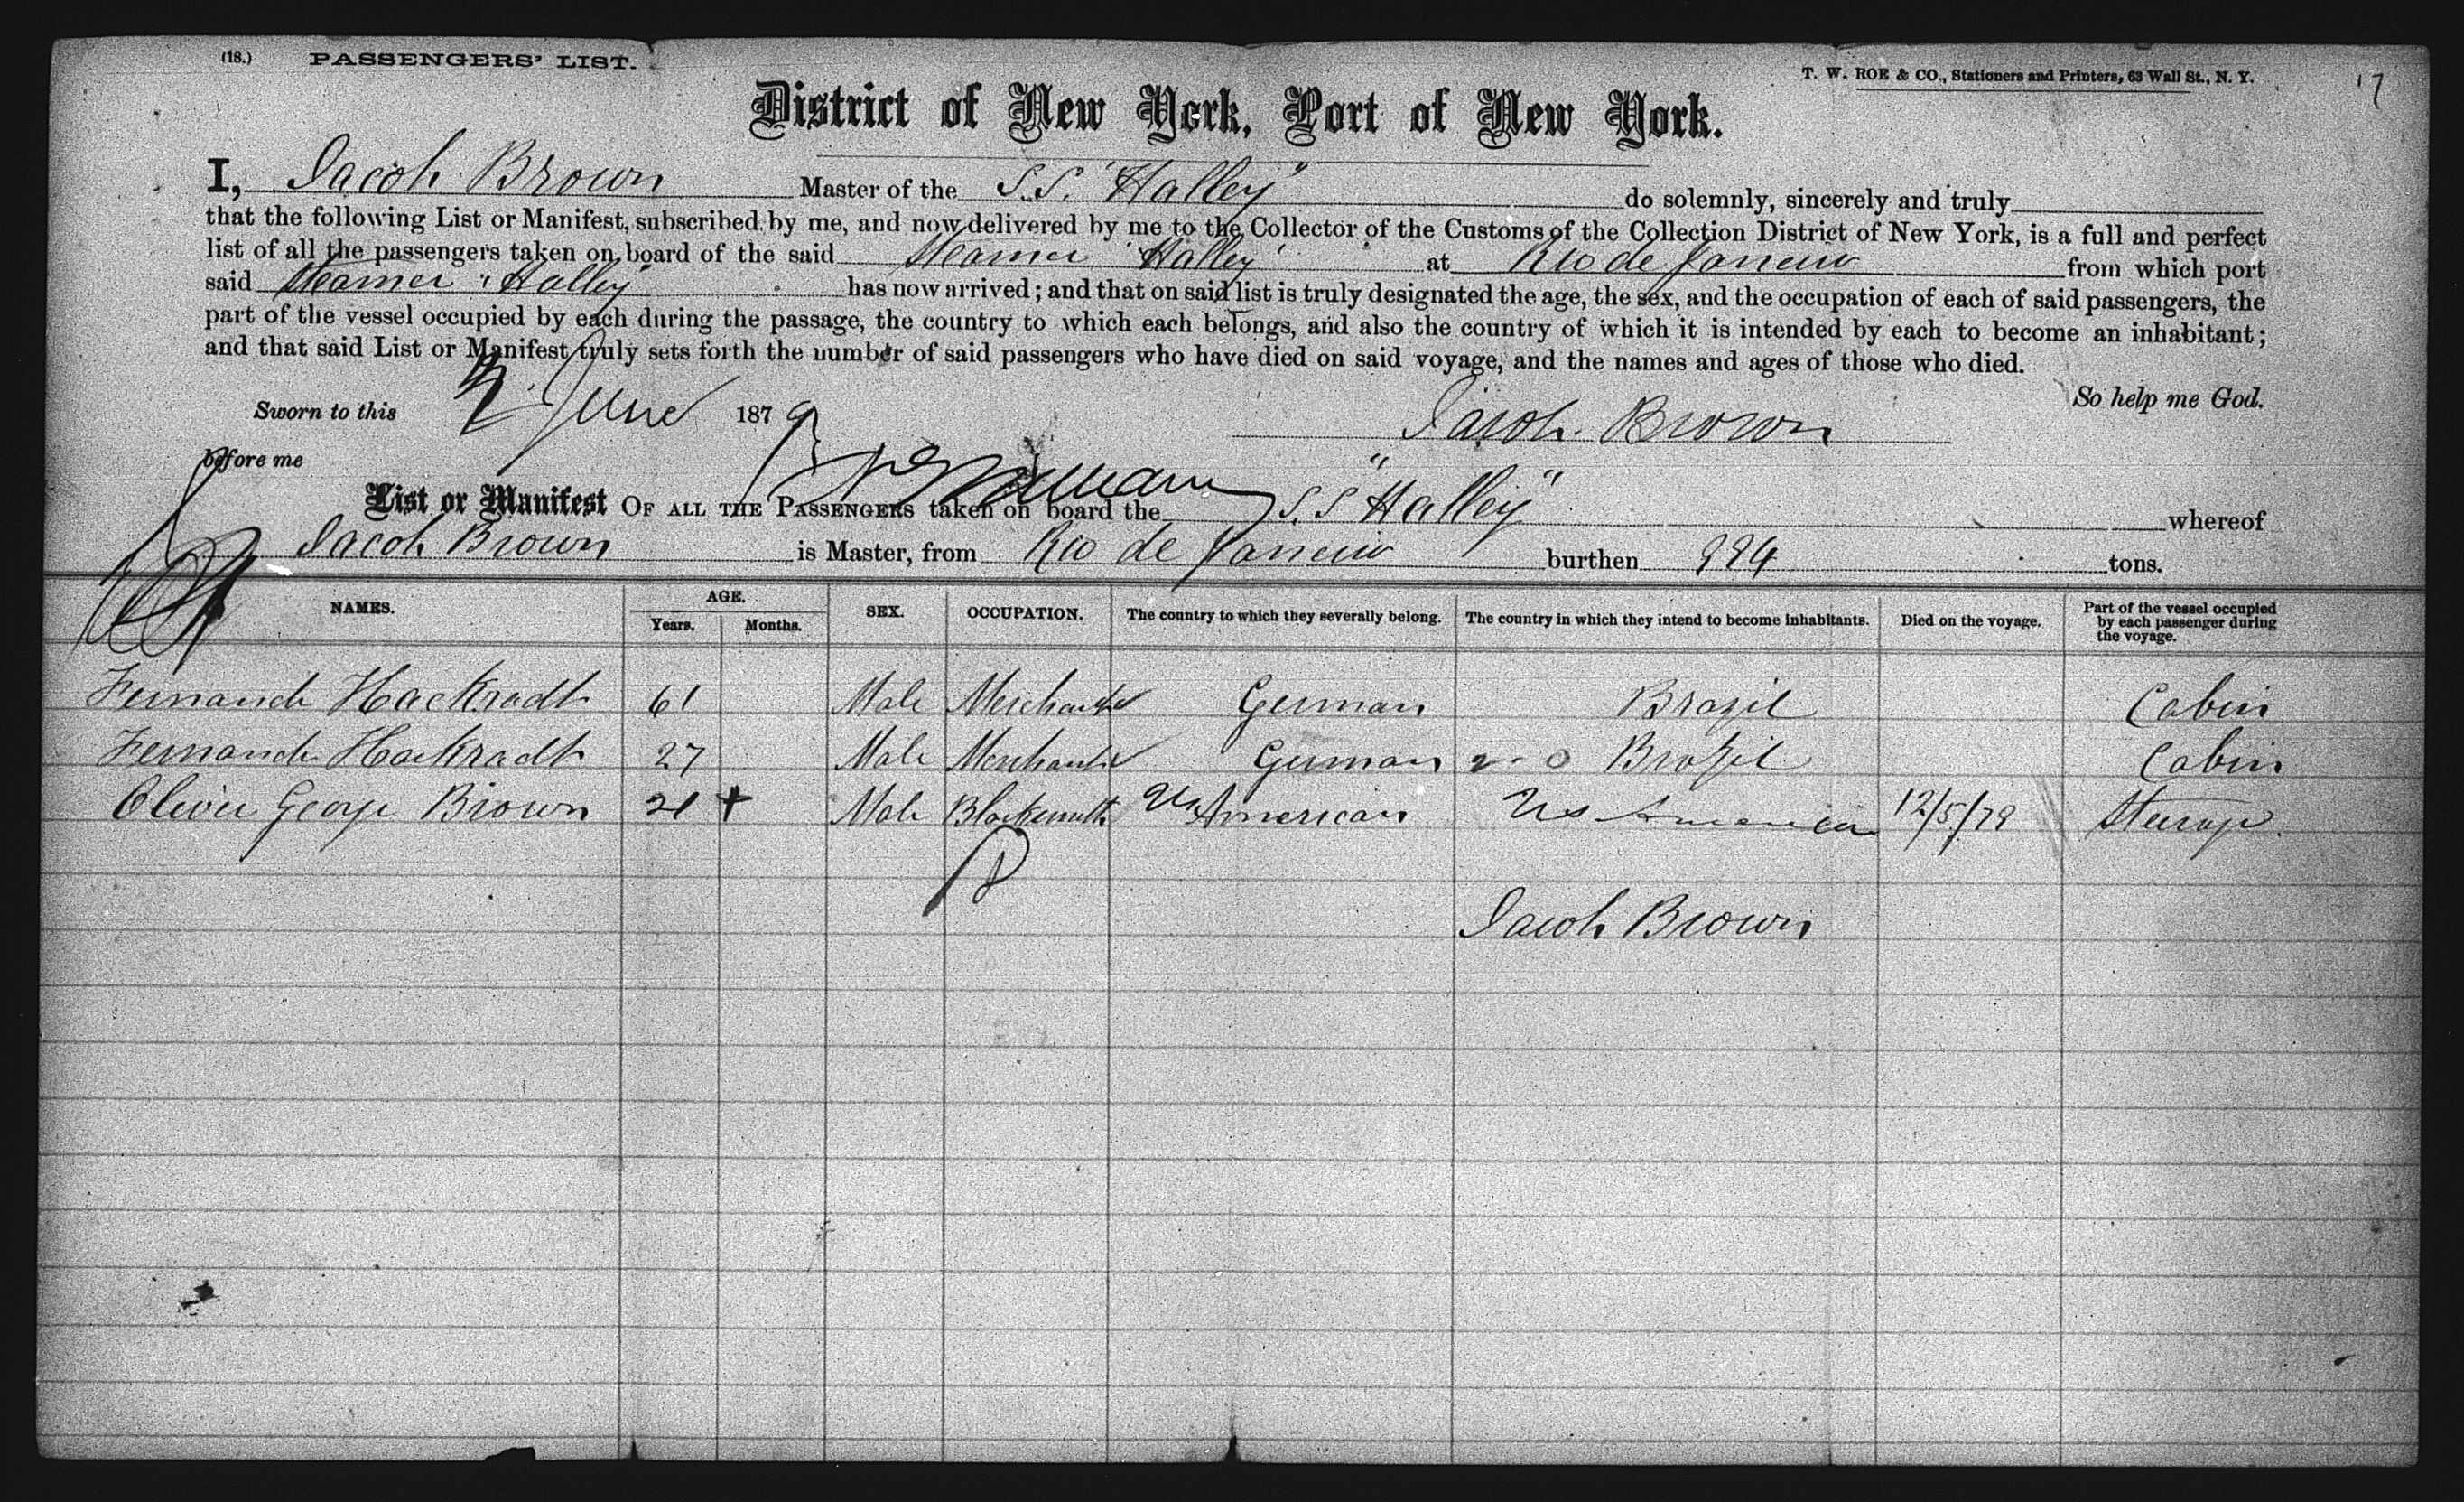 (18.) PASSENGERS' LIST.
T. W. ROE & CO., Stationers and Printers, 63 Wall St., N. Y.
17
District of New York, Port of New York.
I, Jacob Brown Master of the S.S. "Halley" do solemnly, sincerely and truly
that the following List or Manifest, subscribed by me, and now delivered by me to the Collector of the Customs of the Collection District of New York, is a full and perfect
list of all the passengers taken on board of the said Steamer "Halley" at Rio de Janeiro from which port
said Steamer "Halley" has now arrived; and that on said list is truly designated the age, the sex, and the occupation of each of said passengers, the
part of the vessel occupied by each during the passage, the country to which each belongs, and also the country of which it is intended by each to become an inhabitant;
and that said List or Manifest truly sets forth the number of said passengers who have died on said voyage, and the names and ages of those who died.
So help me God.
Sworn to this June 1879
Jacob Brown
before me
List or Manifest OF ALL THE PASSENGERS taken on board the S.S "Halley" whereof
Jacob Brown is Master, from Rio de Janeiro burthen 994 tons.
NAMES. AGE. Years. Months. SEX. OCCUPATION. The country to which they severally belong. The country in which they intend to become inhabitants. Died on the voyage. Part of the vessel occupied by each passenger during the voyage.
Fernando Hackradt 61 Male Merchant German Brazil Cabin
Fernando Hackradt 27 Male Merchant German Brazil Cabin
Oliver George Brown 21 + Male Blacksmith US American US America 12/5/79 Steerage
Jacob Brown